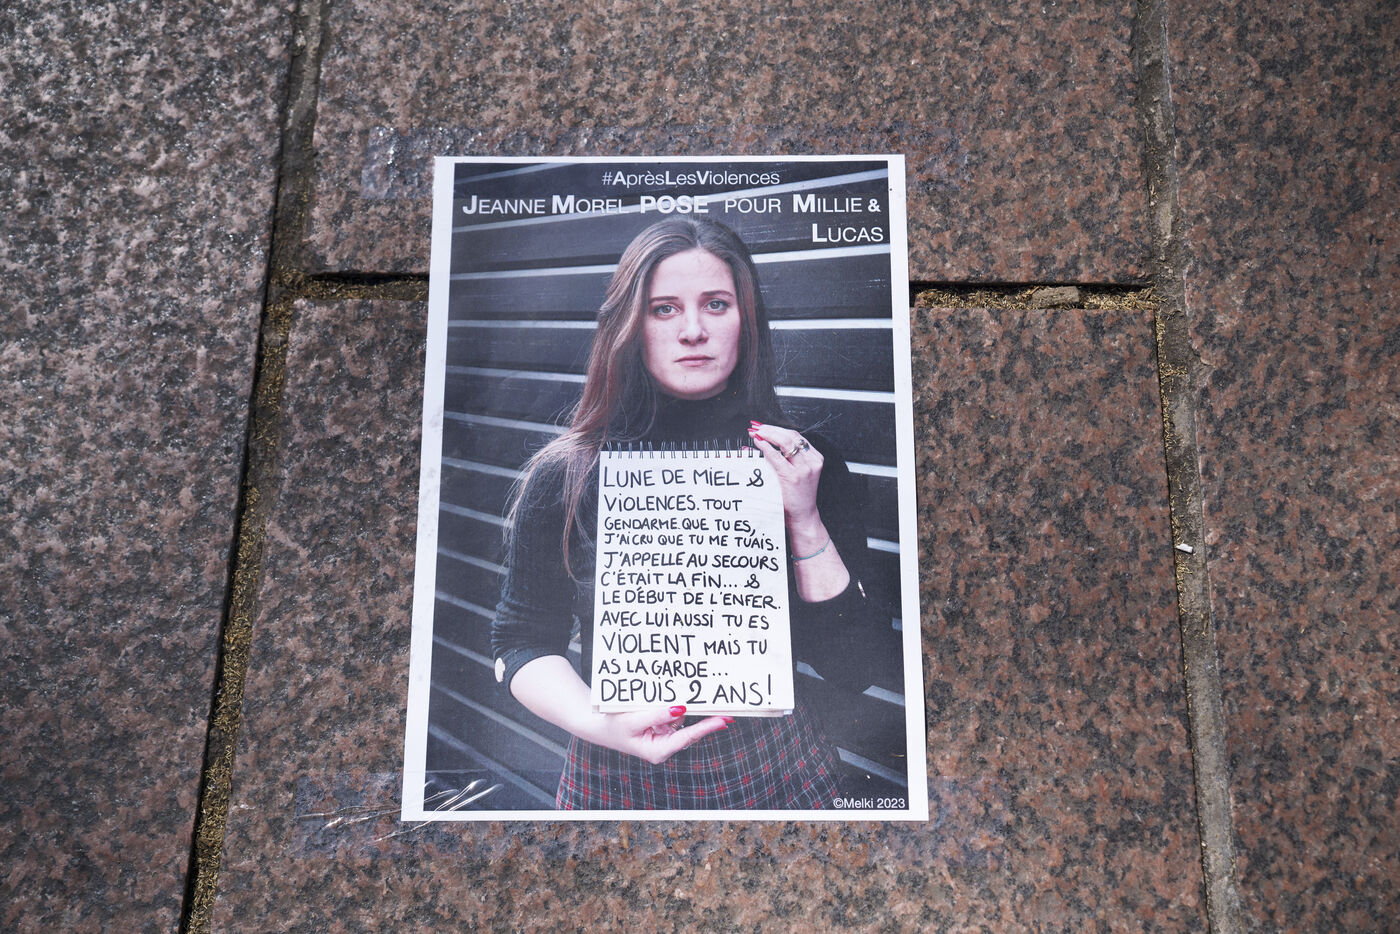 #AprèsLesViolences
JEANNE MOREL POSE POUR MILLIE &
LUCAS
LUNE DE MIEL &
VIOLENCES. TOUT
GENDARME QUE TU ES,
J'AI CRU QUE TU ME TUAIS.
J'APPELLE AU SECOURS
C'ÉTAIT LA FIN... &
LE DÉBUT DE L'ENFER.
AVEC LUI AUSSI TU ES
VIOLENT MAIS TU
AS LA GARDE...
DEPUIS 2 ANS!
©Melki 2023